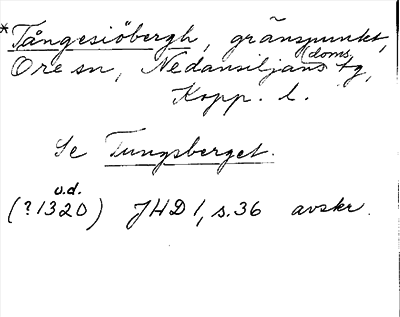 *Tångesiöbergh, gränspunkt,
Ore sn, Nedansiljans doms tg,
Kopp. l.
Se Tungsberget.
(?1320) u.d. JHD 1, s.36 avskr.